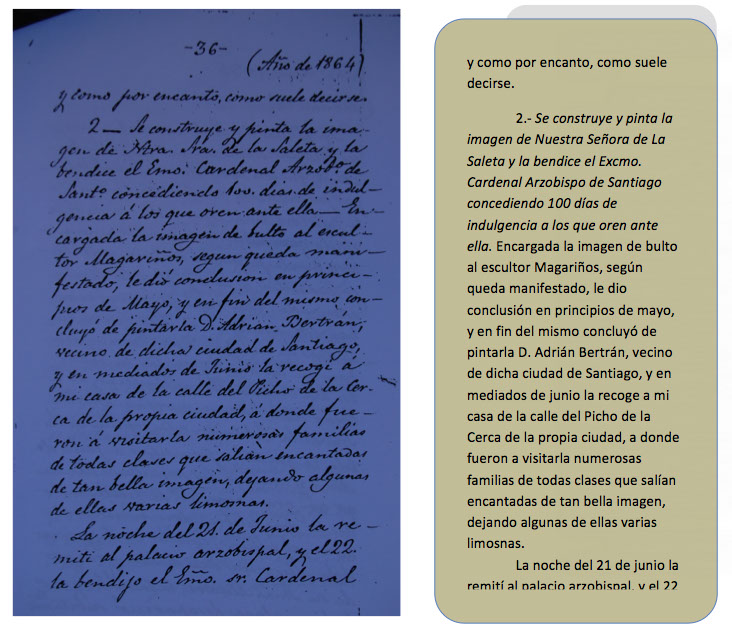 -36-
(Año de 1864)
y como por encanto, como suele decirse.
2 — Se construye y pinta la ima-
gen de Ntra. Sra. de la Saleta y la
bendice el Emo. Cardenal Arzobo. de
Santo. concediendo 100. dias de indul-
gencia á los que oren ante ella — En-
cargada la imagen de bulto al escul-
tor Magariños, segun queda mani-
festado, le dió conclusión en princi-
pios de Mayo, y en fin del mismo con-
cluyó de pintarla D. Adrian Bertrán,
vecino de dicha ciudad de Santiago,
y en mediados de Junio la recogi á
mi casa de la calle del Picho de la Cer-
ca de la propia ciudad, á donde fue-
ron á visitarla numerosas familias
de todas clases que salian encantadas
de tan bella imagen, dejando algunas
de ellas varias limosnas.
La noche del 21. de Junio la re-
miti al palacio arzobispal, y el 22.
la bendijo el Emo. sr. Cardenal
y como por encanto, como suele
decirse.
2.- Se construye y pinta la
imagen de Nuestra Señora de La
Saleta y la bendice el Excmo.
Cardenal Arzobispo de Santiago
concediendo 100 días de
indulgencia a los que oren ante
ella. Encargada la imagen de bulto
al escultor Magariños, según
queda manifestado, le dio
conclusión en principios de mayo,
y en fin del mismo concluyó de
pintarla D. Adrián Bertrán, vecino
de dicha ciudad de Santiago, y en
mediados de junio la recoge a mi
casa de la calle del Picho de la
Cerca de la propia ciudad, a donde
fueron a visitarla numerosas
familias de todas clases que salían
encantadas de tan bella imagen,
dejando algunas de ellas varias
limosnas.
La noche del 21 de junio la
remití al palacio arzobispal, y el 22